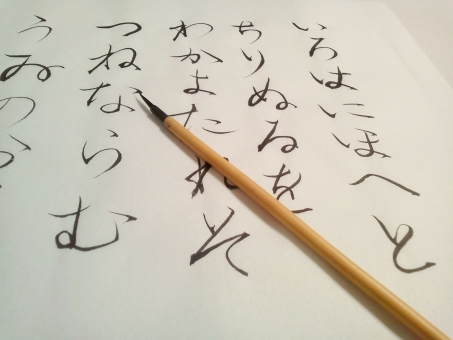 いろはにほへと
ちりぬるを
わかよたれそ
つねならむ
うゐの